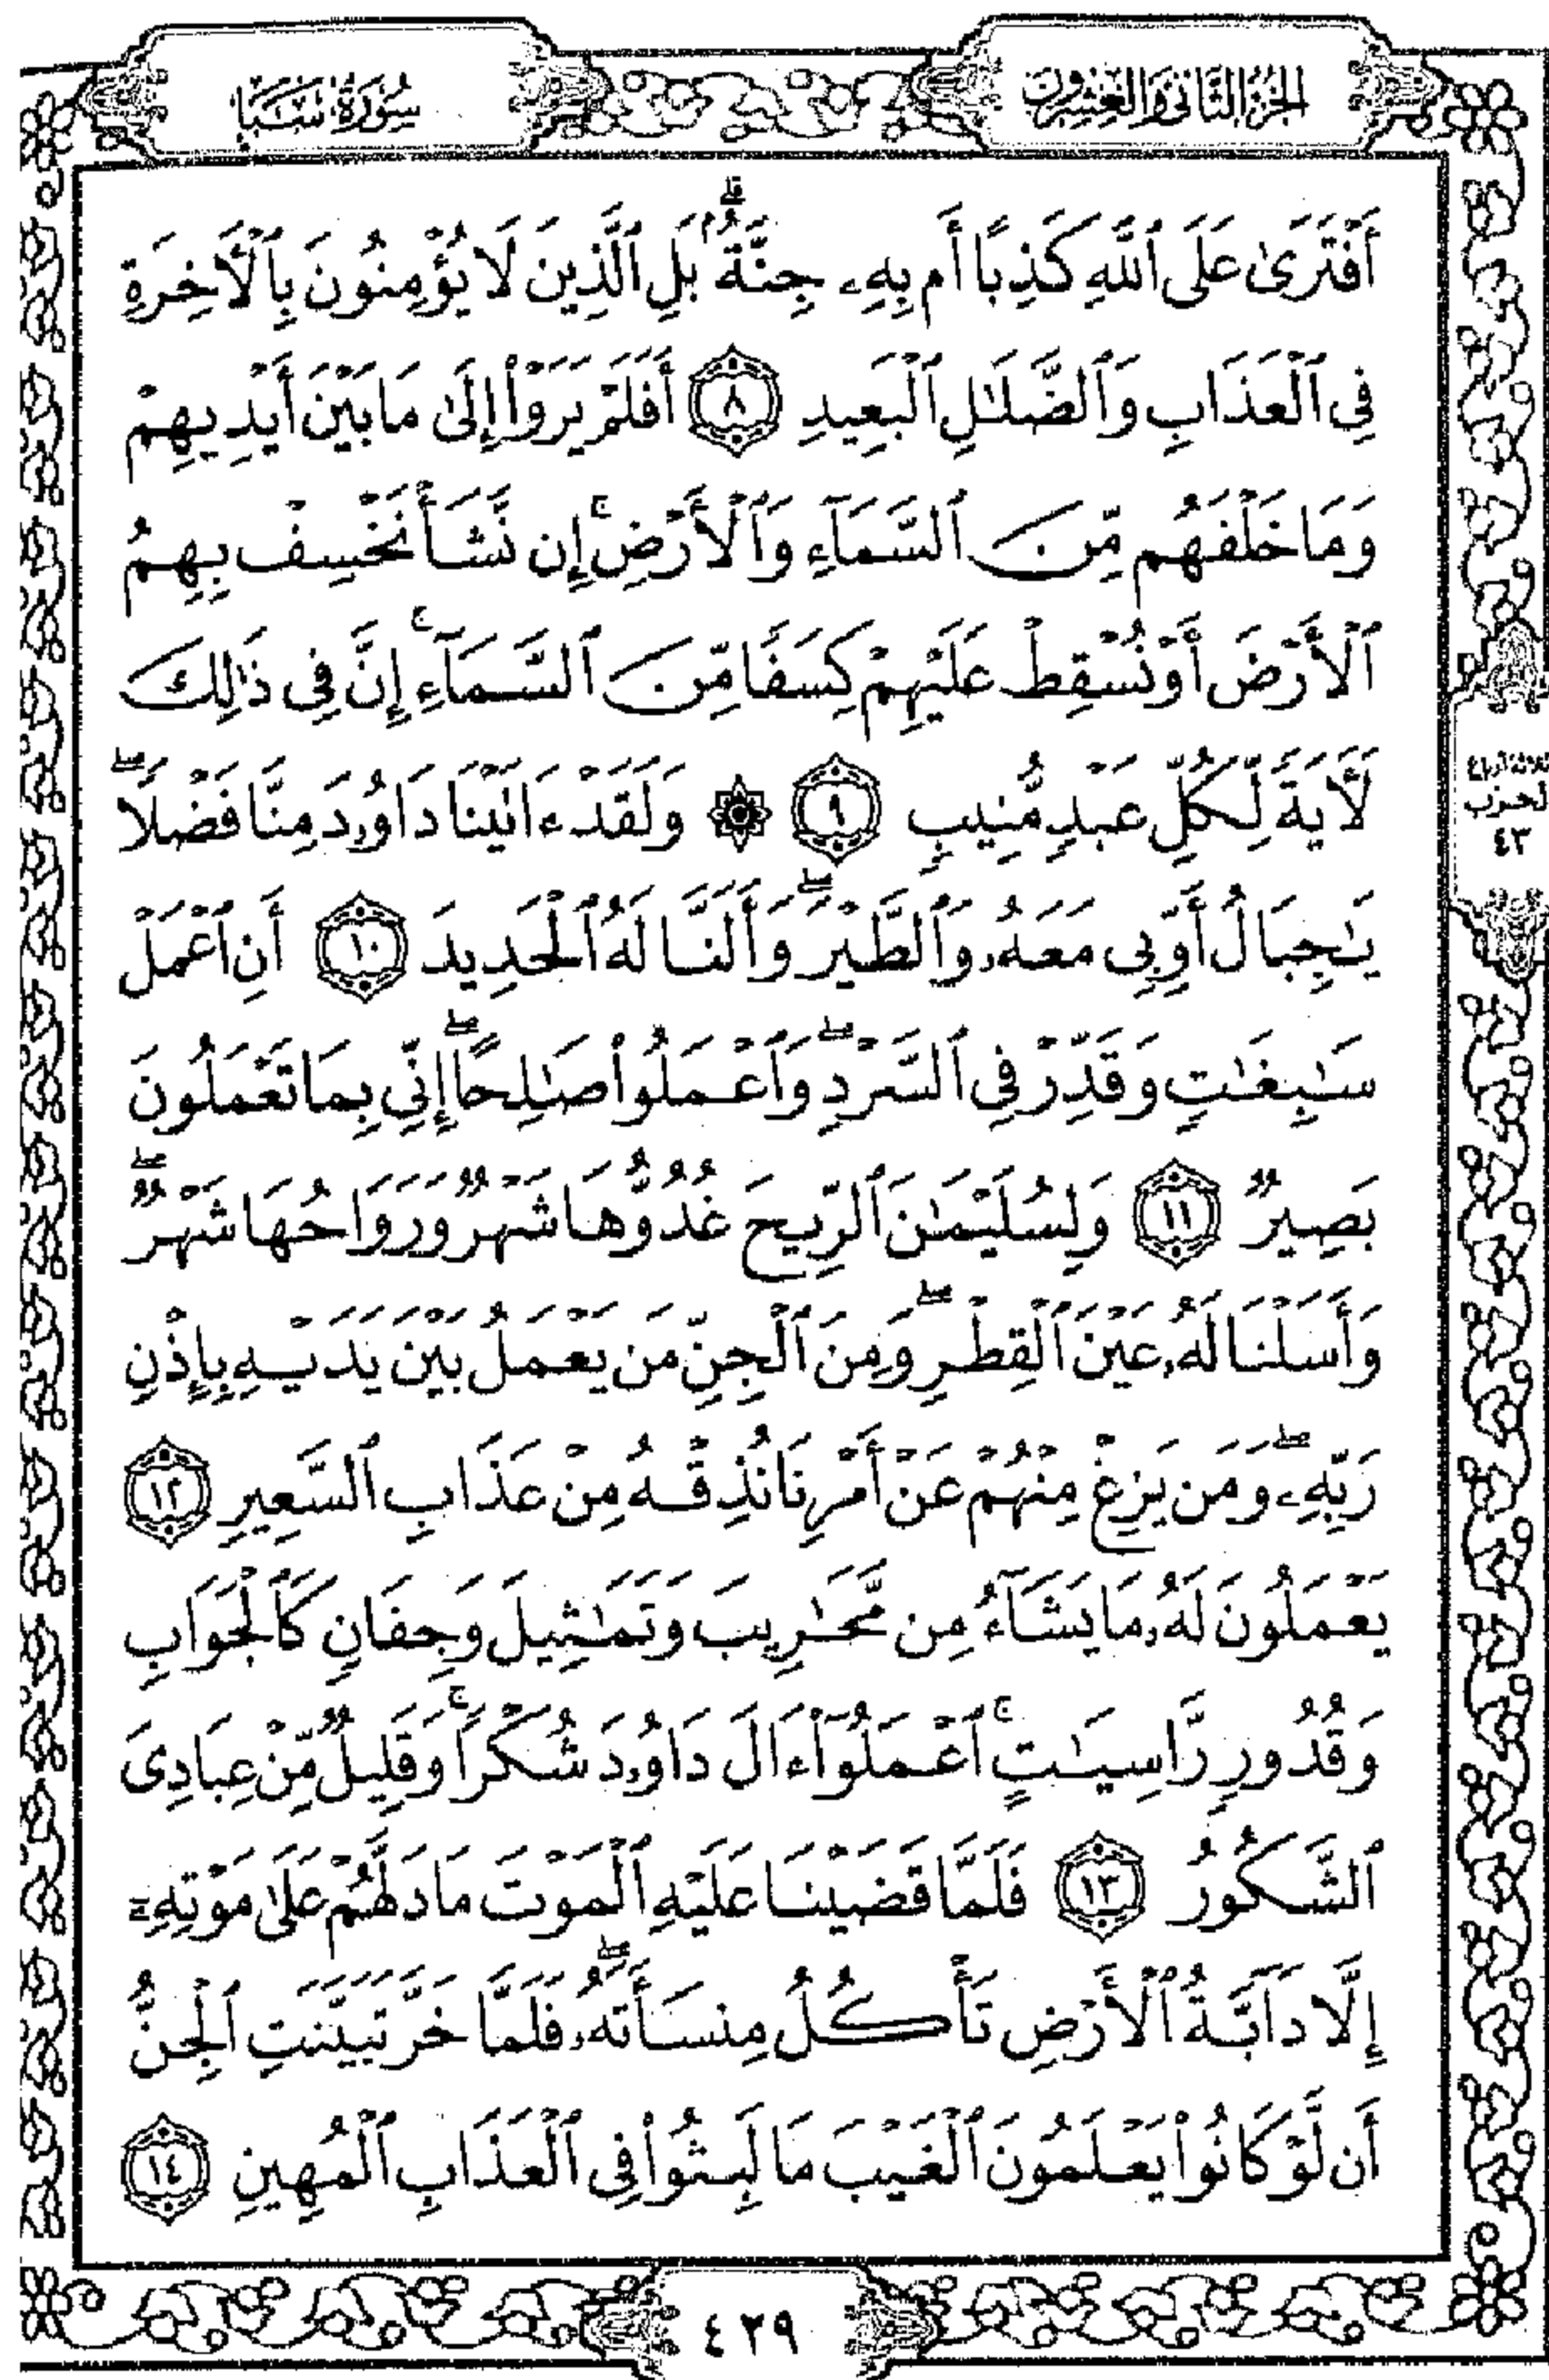 الجزء الثاني والعشرون
سورة سبأ
أَفْتَرَىٰ عَلَى ٱللَّهِ كَذِبًا أَم بِهِۦ جِنَّةٌۢ ۗ بَلِ ٱلَّذِينَ لَا يُؤْمِنُونَ بِٱلْأَخِرَةِ
فِى ٱلْعَذَابِ وَٱلضَّلَٰلِ ٱلْبَعِيدِ ٨ أَفَلَمْ يَرَوْا۟ إِلَىٰ مَا بَيْنَ أَيْدِيهِمْ
وَمَا خَلْفَهُم مِّنَ ٱلسَّمَآءِ وَٱلْأَرْضِ ۚ إِن نَّشَأْ نَخْسِفْ بِهِمُ
ٱلْأَرْضَ أَوْ نُسْقِطْ عَلَيْهِمْ كِسَفًا مِّنَ ٱلسَّمَآءِ ۚ إِنَّ فِى ذَٰلِكَ
لَأَيَةً لِّكُلِّ عَبْدٍ مُّنِيبٍ ٩ ۞ وَلَقَدْ ءَاتَيْنَا دَاوُۥدَ مِنَّا فَضْلًا ۖ
يَٰجِبَالُ أَوِّبِى مَعَهُۥ وَٱلطَّيْرَ ۖ وَأَلَنَّا لَهُ ٱلْحَدِيدَ ١٠ أَنِ ٱعْمَلْ
سَٰبِغَٰتٍ وَقَدِّرْ فِى ٱلسَّرْدِ ۖ وَٱعْمَلُوا۟ صَٰلِحًا ۖ إِنِّى بِمَا تَعْمَلُونَ
بَصِيرٌ ١١ وَلِسُلَيْمَٰنَ ٱلرِّيحَ غُدُوُّهَا شَهْرٌ وَرَوَاحُهَا شَهْرٌ ۖ
وَأَسَلْنَا لَهُۥ عَيْنَ ٱلْقِطْرِ ۖ وَمِنَ ٱلْجِنِّ مَن يَعْمَلُ بَيْنَ يَدَيْهِ بِإِذْنِ
رَبِّهِۦ ۖ وَمَن يَزِغْ مِنْهُمْ عَنْ أَمْرِنَا نُذِقْهُ مِنْ عَذَابِ ٱلسَّعِيرِ ١٢
يَعْمَلُونَ لَهُۥ مَا يَشَآءُ مِن مَّحَٰرِيبَ وَتَمَٰثِيلَ وَجِفَانٍ كَٱلْجَوَابِ
وَقُدُورٍ رَّاسِيَٰتٍ ۚ ٱعْمَلُوٓا۟ ءَالَ دَاوُۥدَ شُكْرًا ۚ وَقَلِيلٌ مِّنْ عِبَادِىَ
ٱلشَّكُورُ ١٣ فَلَمَّا قَضَيْنَا عَلَيْهِ ٱلْمَوْتَ مَا دَلَّهُمْ عَلَىٰ مَوْتِهِۦٓ
إِلَّا دَآبَّةُ ٱلْأَرْضِ تَأْكُلُ مِنسَأَتَهُۥ ۖ فَلَمَّا خَرَّ تَبَيَّنَتِ ٱلْجِنُّ
أَن لَّوْ كَانُوا۟ يَعْلَمُونَ ٱلْغَيْبَ مَا لَبِثُوا۟ فِى ٱلْعَذَابِ ٱلْمُهِينِ ١٤
ثلاثة أرباع
الحزب
٤٣
٤٢٩